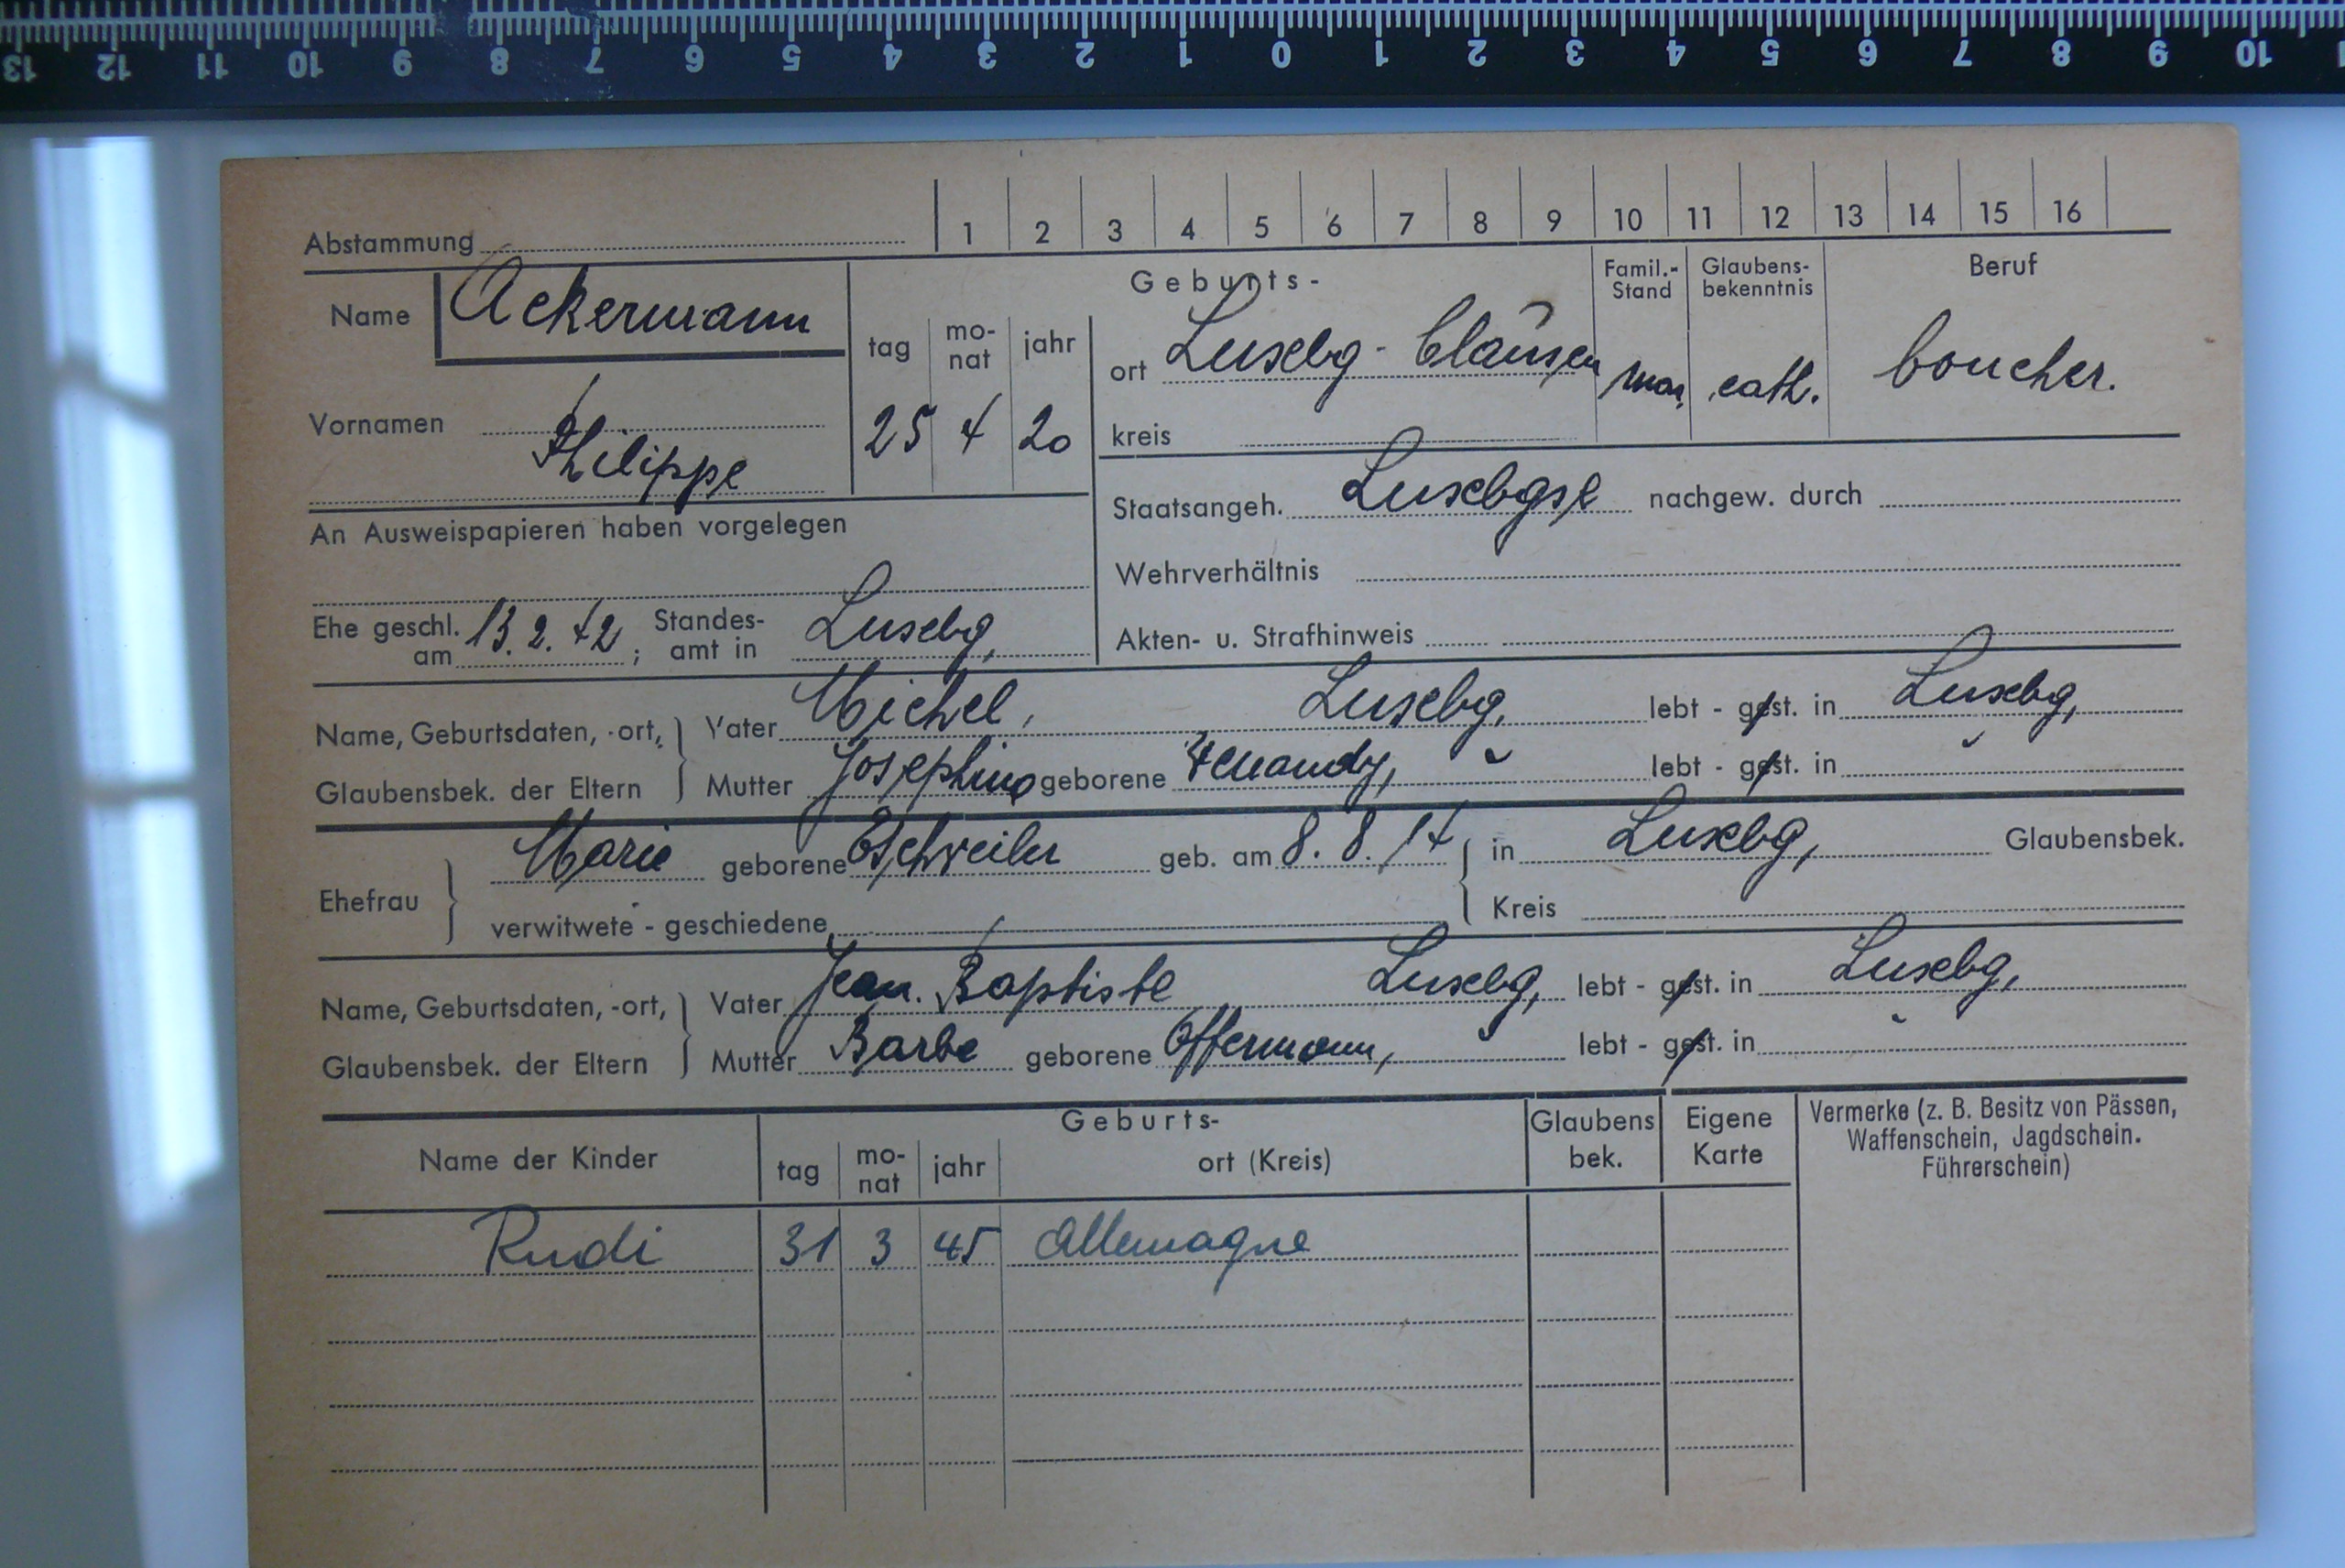 13 12 11 10 9 8 7 6 5 4 3 2 1 0 1 2 3 4 5 6 7 8 9 10
Abstammung 1 2 3 4 5 6 7 8 9 10 11 12 13 14 15 16
Name Ackermann
Vornamen Philippe
Geburts-
tag mo-nat jahr
25 4 20
ort Luxbg - Clausen
kreis
Famil.-Stand
mar.
Glaubens-bekenntnis
cath.
Beruf
boucher.
An Ausweispapieren haben vorgelegen
Staatsangeh. Luxbgse nachgew. durch
Wehrverhältnis
Ehe geschl. am 13. 2. 42 ; Standes-amt in Luxbg,
Akten- u. Strafhinweis
Name, Geburtsdaten, -ort, Vater Michel, Luxbg, lebt - gest. in Luxbg,
Glaubensbek. der Eltern Mutter Josephine geborene lebt - gest. in
Ehefrau Marie geborene Eschweiler geb. am 8. 8. in Luxbg, Glaubensbek.
verwitwete - geschiedene Kreis
Name, Geburtsdaten, -ort, Vater Jean. Baptiste Luxbg, lebt - gest. in Luxbg,
Glaubensbek. der Eltern Mutter Barbe geborene Offermann, " lebt - gest. in "
Name der Kinder
Geburts-
tag mo-nat jahr ort (Kreis)
Glaubens bek.
Eigene Karte
Vermerke (z. B. Besitz von Pässen,
Waffenschein, Jagdschein.
Führerschein)
Rudi 31 3 45 Allemagne